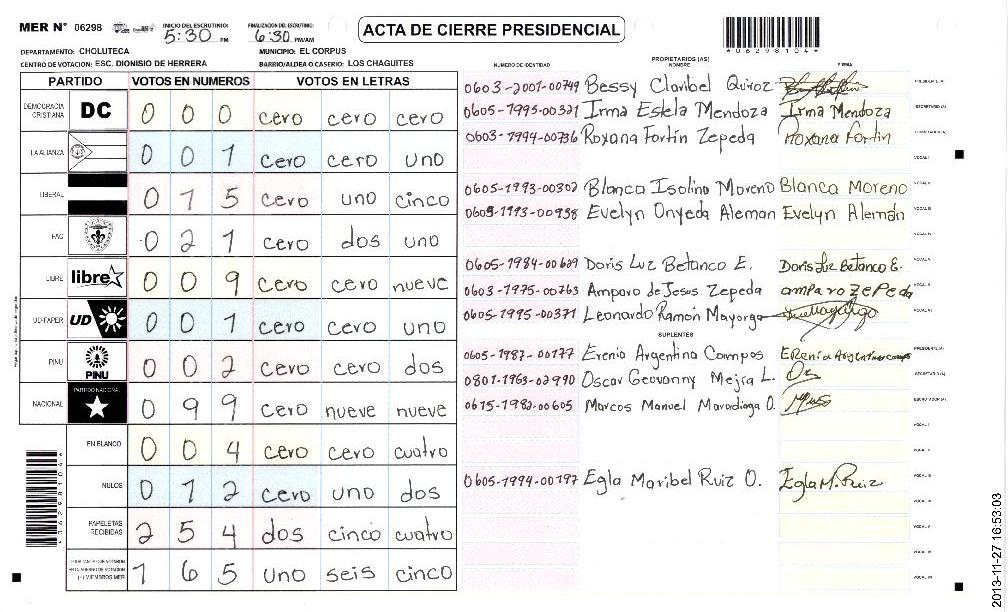 MER N° 06298
INICIO DEL ESCRUTINIO: 5:30 PM
FINALIZACION DEL ESCRUTINIO: 6:30 PM/AM
ACTA DE CIERRE PRESIDENCIAL
*06298104*
DEPARTAMENTO: CHOLUTECA MUNICIPIO: EL CORPUS
CENTRO DE VOTACION: ESC. DIONISIO DE HERRERA BARRIO/ALDEA O CASERIO: LOS CHAGUITES
PARTIDO VOTOS EN NUMEROS VOTOS EN LETRAS
DEMOCRACIA CRISTIANA DC 0 0 0 cero cero cero
LA ALIANZA 0 0 1 cero cero uno
LIBERAL 0 1 5 cero uno cinco
PAC 0 2 1 cero dos uno
LIBRE libre 0 0 9 cero cero nueve
UD-FAPER UD 0 0 1 cero cero uno
PINU PINU 0 0 2 cero cero dos
NACIONAL PARTIDO NACIONAL 0 9 9 cero nueve nueve
EN BLANCO 0 0 4 cero cero cuatro
NULOS 0 1 2 cero uno dos
PAPELETAS RECIBIDAS 2 5 4 dos cinco cuatro
(+) MIEMBROS MER 1 6 5 uno seis cinco
NUMERO DE IDENTIDAD PROPIETARIOS (AS) NOMBRE FIRMA
0603-2001-00749 Bessy Claribel Quiroz PRESIDENTE (A)
0605-1995-00321 Irma Estela Mendoza Irma Mendoza SECRETARIO (A)
0603-1994-00736 Roxana Fortín Zepeda Roxana Fortín
VOCAL I
0605-1993-00302 Blanca Isolina Moreno Blanca Moreno
0605-1993-00958 Evelyn Onyeda Aleman Evelyn Alemán
0605-1984-00629 Doris Luz Betanco E. Doris Luz Betanco E.
0603-1975-00763 Amparo de Jesus Zepeda amparo zepeda
0605-1995-00371 Leonardo Ramon Mayorga
SUPLENTES
0605-1987-00177 Erenia Argentina Campos Erenia Argentina campos PRESIDENTE (A)
0801-1963-02990 Oscar Geovanny Mejia L. SECRETARIO (A)
0615-1982-00605 Marcos Manuel Maradiaga O. ESCRUTADOR (A)
0605-1994-00197 Egla Maribel Ruiz O. Egla M. Ruiz
*06298104*
2013-11-27 16:53:03